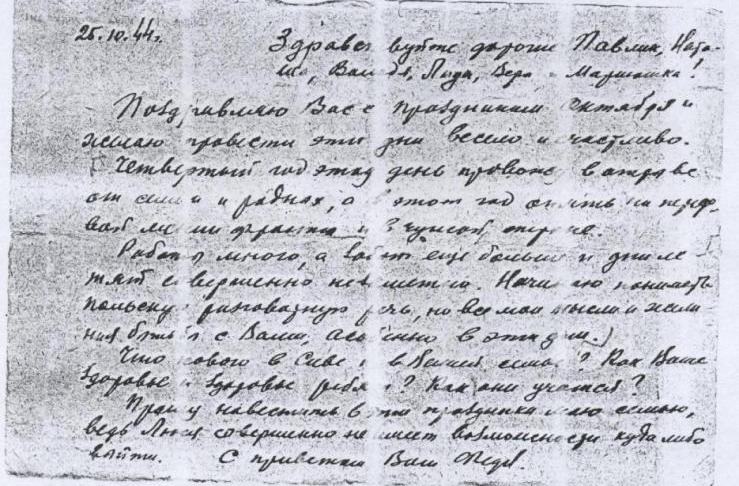 25.10.44г.
Здравствуйте дорогие Павлик, Ната-
ша, Вера Маришка!
Поздравляю Вас с праздником Октября и
желаю провести эти дни весело и счастливо.
Четвертый год этот день провожу в отрыве
от семьи и родных, а в этот год опять на перед-
линии фронта и в чужой стороне.
Работы много, а забот еще больше и дни ле-
тят совершенно незаметно. Начинаю понимать
польскую разговорную речь, но все мои мысли и жела-
ния быть с Вами, особенно в эти дни.
Что нового в и в Вашей семье? Как Ваше
здоровье и здоровье ребят? Как они учатся?
Прошу навестить в эти праздники мою семью,
ведь Люся совершенно не имеет возможности куда либо
выйти. С приветом Ваш